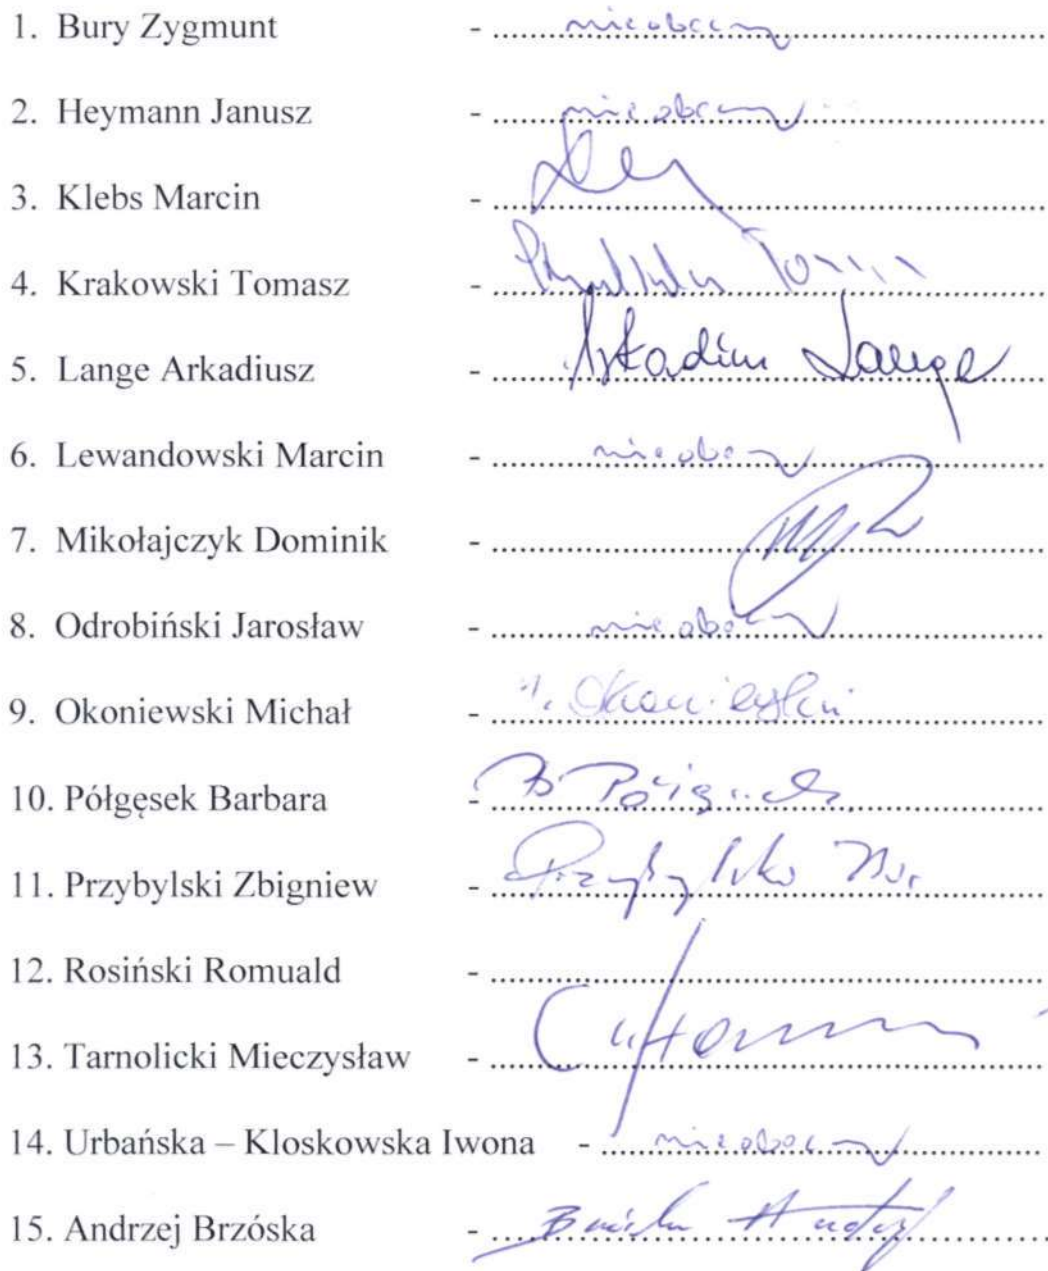 1. Bury Zygmunt - nieobecny
2. Heymann Janusz - nieobecny
3. Klebs Marcin -
4. Krakowski Tomasz -
5. Lange Arkadiusz - Arkadiusz Lange
6. Lewandowski Marcin - nieobecny
7. Mikołajczyk Dominik -
8. Odrobiński Jarosław - nieobecny
9. Okoniewski Michał - Okoniewski
10. Półgęsek Barbara - B
11. Przybylski Zbigniew -
12. Rosiński Romuald -
13. Tarnolicki Mieczysław -
14. Urbańska – Kloskowska Iwona - nieobecny
15. Andrzej Brzóska -